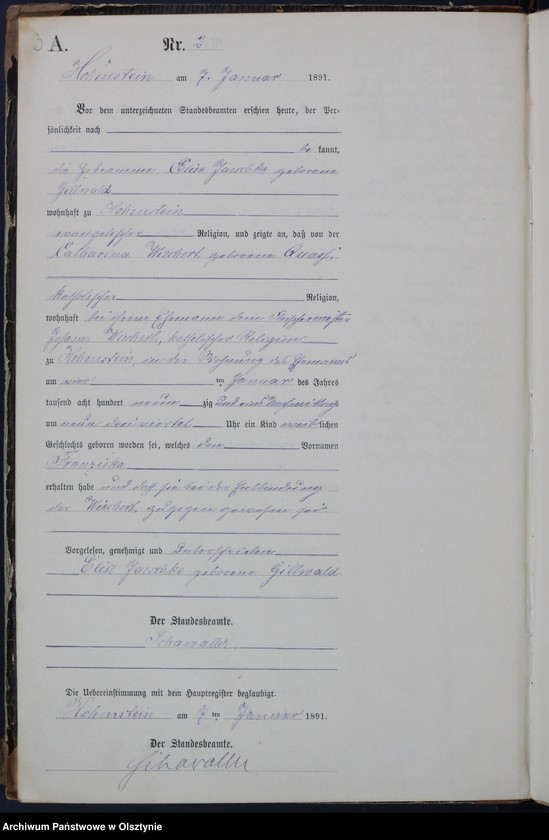 3 A. Nr. 2
Hohenstein am 7. Januar 1891.
Vor dem unterzeichneten Standesbeamten erschien heute, der Per-
sönlichkeit nach
be kannt,
die Hebeamme Elise Jaschke geborene
Gillwald
wohnhaft zu Hohenstein
evangelischer Religion, und zeigte an, daß von der
Catharina Wiechert geborene
katholischer Religion,
wohnhaft bei ihrem Ehemann dem
Johann Wiechert, katholischer Religion
zu Hohenstein, in der Wohnung des Ehemanns
am vier ten Januar des Jahres
tausend acht hundert neun zig und eins Vormittags
um neun dreiviertel Uhr ein Kind weib lichen
Geschlechts geboren worden sei, welches den Vornamen
Franziska
erhalten habe und daß sie bei der Entbindung
der Wiechert zugegen gewesen sei.
Vorgelesen, genehmigt und unterschrieben
Elise Jaschke geborene Gillwald.
Der Standesbeamte.
Schawaller.
Die Uebereinstimmung mit dem Hauptregister beglaubigt.
Hohenstein am 7 ten Januar 1891.
Der Standesbeamte.
Schawaller
Archiwum Państwowe w Olsztynie